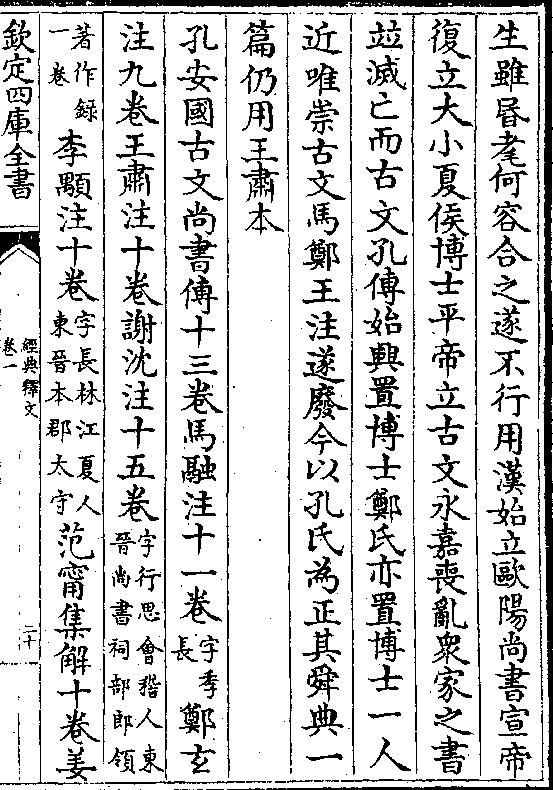 生雖昬耄何容合之遂不行用漢始立歐陽尚書宣帝
復立大小夏侯博士平帝立古文永嘉喪亂衆家之書
並滅亡而古文孔傳始興置博士鄭氏亦置博士一人
近唯崇古文馬鄭王注遂廢今以孔氏為正其舜典一
篇仍用王肅本
孔安國古文尚書傳十三卷馬融注十一卷字季長鄭玄
注九卷王肅注十卷謝沈注十五卷字行思會稽人東晉尚書祠部郎領
著作録一卷李顒注十卷字長林江夏人東晉本郡太守范甯集解十卷姜
欽定四庫全書
經典釋文
卷一
二十